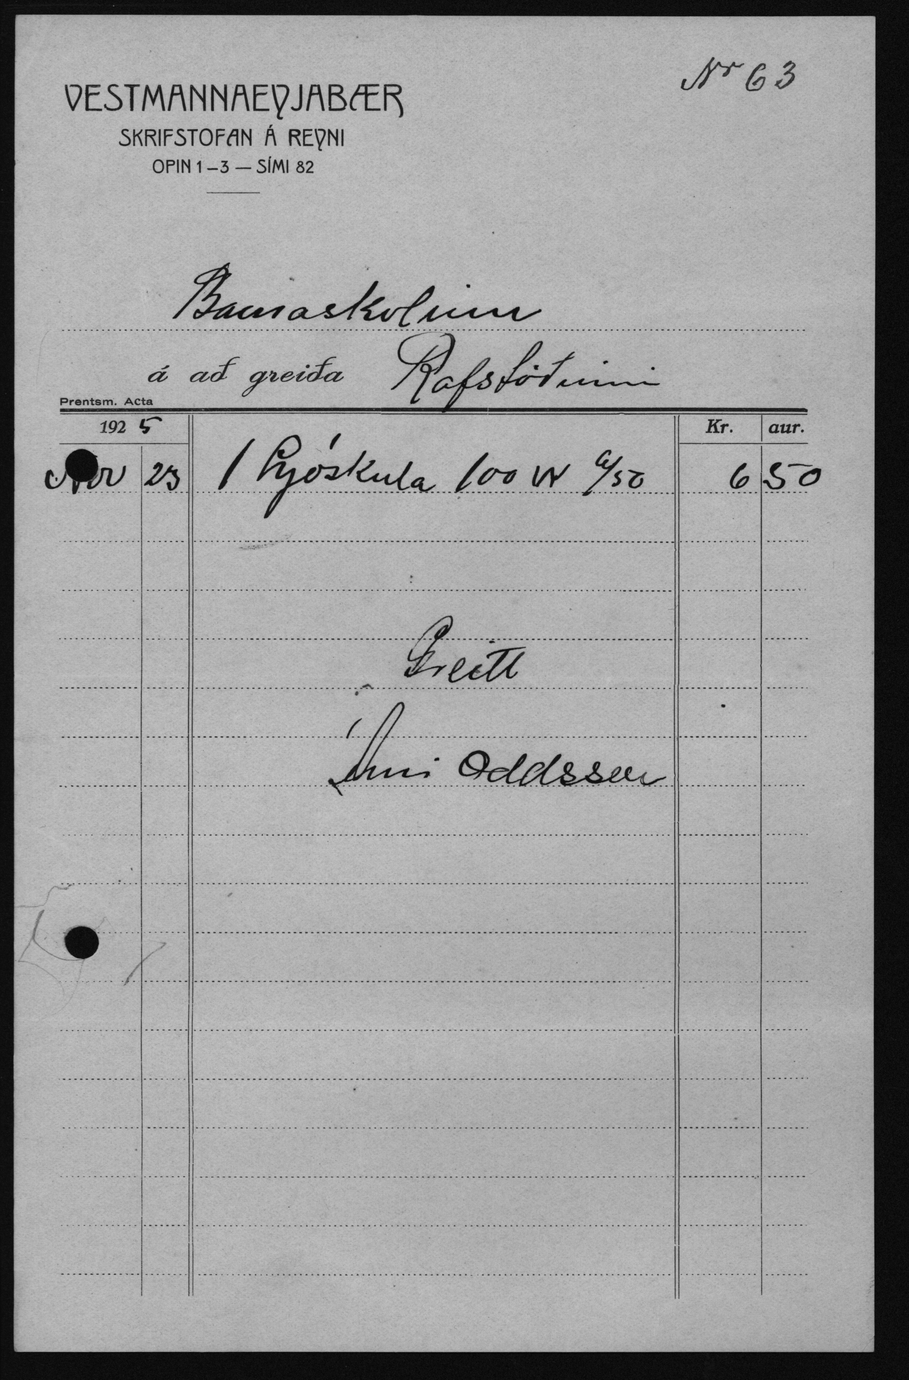 Nr 63
VESTMANNAEYJABÆR
SKRIFSTOFAN Á REYNI
OPIN 1–3 — SÍMI 82
Barnaskolinn
á að greiða Rafstöðinni
Prentsm. Acta
1925 Kr. aur.
Nov 23 1 Ljóskula 100 W 6/50 6 50
Greitt
Árni Oddsson